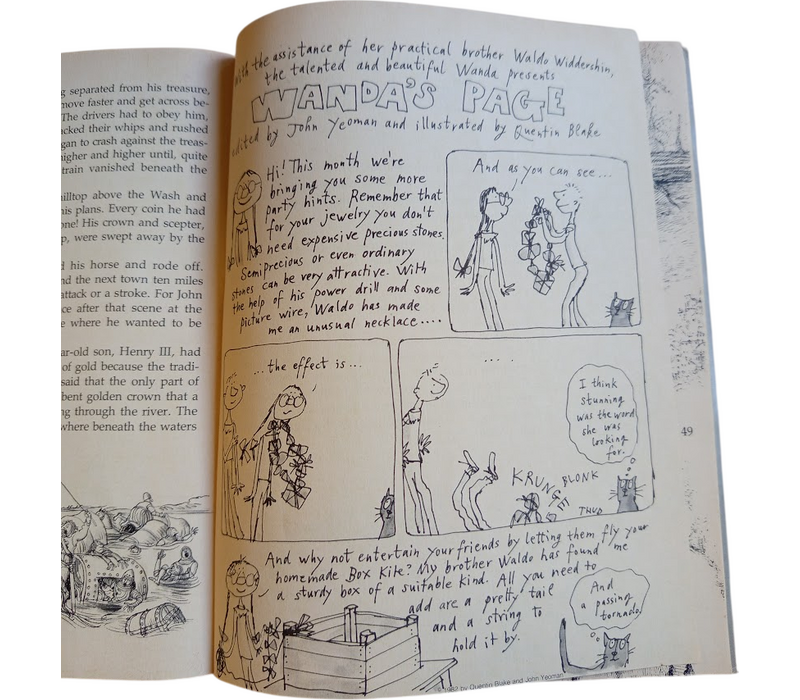 g separated from his treasure,
move faster and get across be-
The drivers had to obey him,
cked their whips and rushed
gan to crash against the treas-
igher and higher until, quite
train vanished beneath the
illtop above the Wash and
his plans. Every coin he had
one! His crown and scepter,
p, were swept away by the
d his horse and rode off.
nd the next town ten miles
attack or a stroke. For John
ce after that scene at the
e where he wanted to be
ar-old son, Henry III, had
of gold because the tradi-
said that the only part of
bent golden crown that a
ng through the river. The
where beneath the waters
With the assistance of her practical brother Waldo Widdershin,
the talented and beautiful Wanda presents
WANDA'S PAGE
edited by John Yeoman and illustrated by Quentin Blake
Hi! This month we're
bringing you some more
party hints. Remember that
for your jewelry you don't
need expensive precious stones.
Semiprecious or even ordinary
stones can be very attractive. With
the help of his power drill and some
picture wire, Waldo has made
me an unusual necklace....
And as you can see...
...the effect is...
....
I think
stunning
was the word
she was
looking
for.
KRUNGE
BLONK
THUD
And why not entertain your friends by letting them fly your
homemade Box Kite? My brother Waldo has found me
a sturdy box of a suitable kind. All you need to
add are a pretty tail
and a string to
hold it by.
And
a passing
tornado.
© 1982 by Quentin Blake and John Yeoman
49